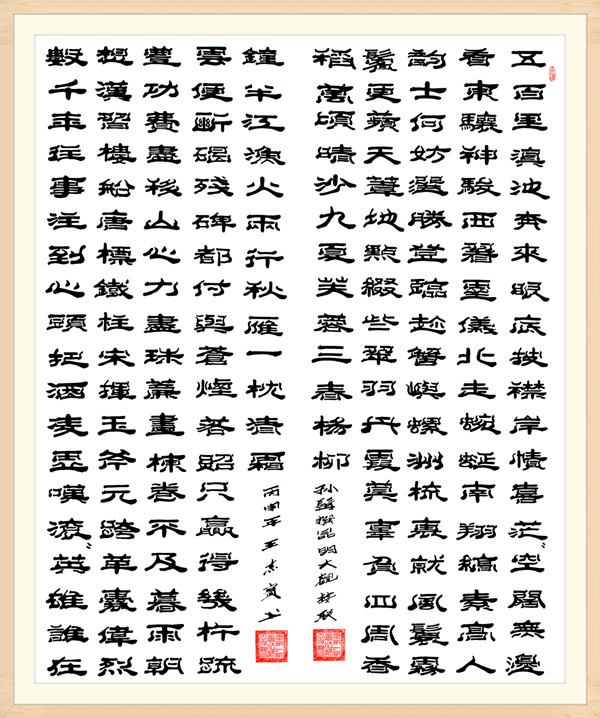 五百里滇池奔來眼底披襟岸幘喜茫〻空闊無邊
看東驤神駿西翥靈儀北走蜿蜒南翔縞素高人
韵士何妨選勝登臨趁蟹嶼螺洲梳裹就風鬟霧
鬢更蘋天葦地點綴些翠羽丹霞莫辜負四周香
稻萬頃晴沙九夏芙蓉三春楊柳
孙髯撰昆明大觀楼联
數千年往事注到心頭把酒凌虛嘆滾〻英雄誰在
想漢習樓船唐標鐵柱宋揮玉斧元跨革囊偉烈
豐功費盡移山心力盡珠簾畫棟卷不及暮雨朝
雲便斷碣殘碑都付與蒼煙落照只贏得幾杵疏
鐘半江漁火兩行秋雁一枕清霜
丙申年王杰书